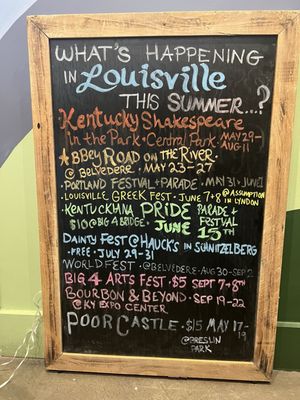 WHAT'S HAPPENING
IN Louisville
THIS SUMMER...?
Kentucky Shakespeare
in the Park • Central Park • MAY 29-
AUG 11
ABBEY ROAD ON THE RIVER
@ BELVEDERE • MAY 23-27
PORTLAND FESTIVAL + PARADE • MAY 31 • JUNE 1
LOUISVILLE GREEK FEST • JUNE 7+8 @ ASSUMPTION
IN LYNDON
KENTUCKIANA PRIDE PARADE +
FESTIVAL
$10 @ BIG 4 BRIDGE • JUNE 15TH
DAINTY FEST @ HAUCK'S IN SCHNITZELBERG
• FREE • JULY 29-31
WORLDFEST • @ BELVEDERE • AUG 30-SEP 2
BIG 4 ARTS FEST • $5 SEPT 7+8TH
BOURBON & BEYOND • SEP 19-22
@ KY EXPO CENTER
POOR CASTLE • $15 MAY 17-
19
@ BRESLIN
PARK